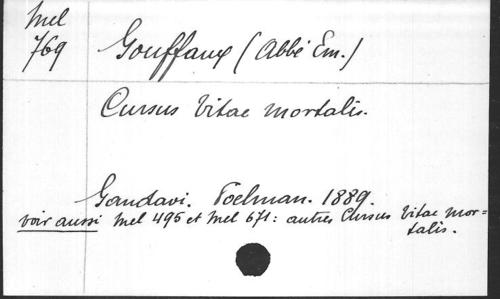 Mel
769
Gouffaux (Abbé Em.)
Cursus vitae mortalis.
Gandavi. Toelman. 1889.
voir aussi Mel 495 et Mel 671: autres Cursus vitae mor=
talis.